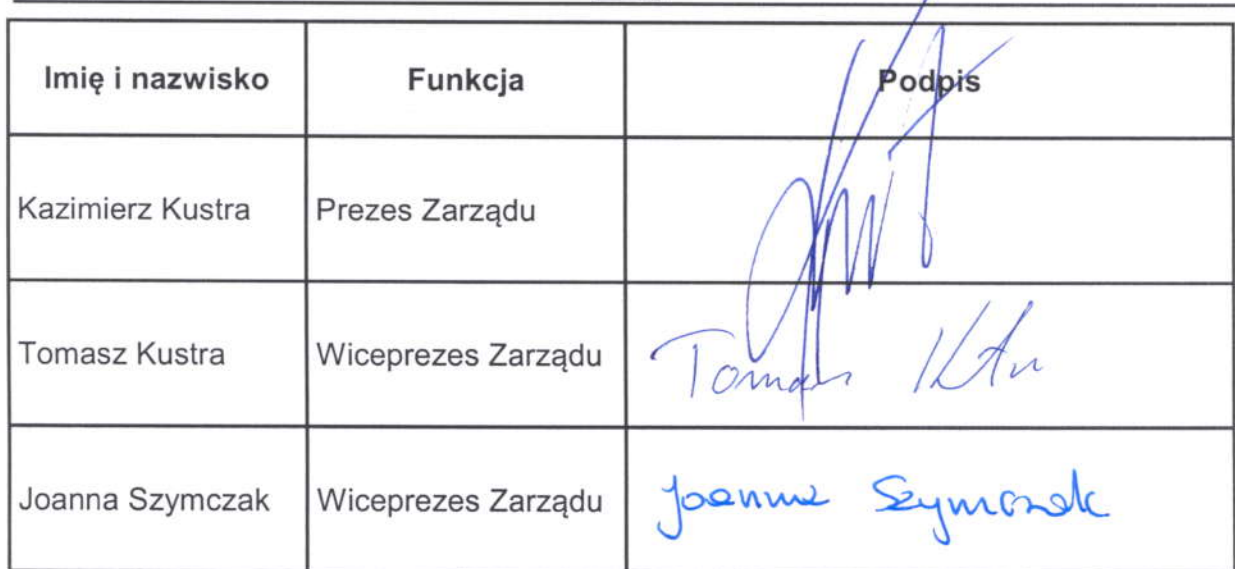 Imię i nazwisko Funkcja Podpis
Kazimierz Kustra Prezes Zarządu
Tomasz Kustra Wiceprezes Zarządu Tomasz
Joanna Szymczak Wiceprezes Zarządu Joanna Szymczak